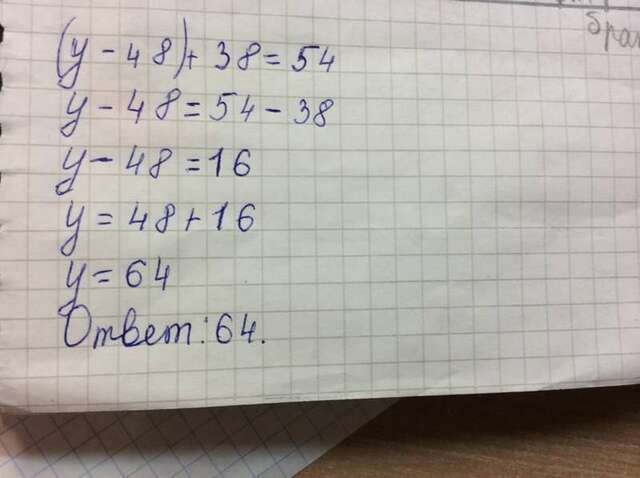 (y - 48) + 38 = 54
y - 48 = 54 - 38
y - 48 = 16
y = 48 + 16
y = 64
Ответ: 64.